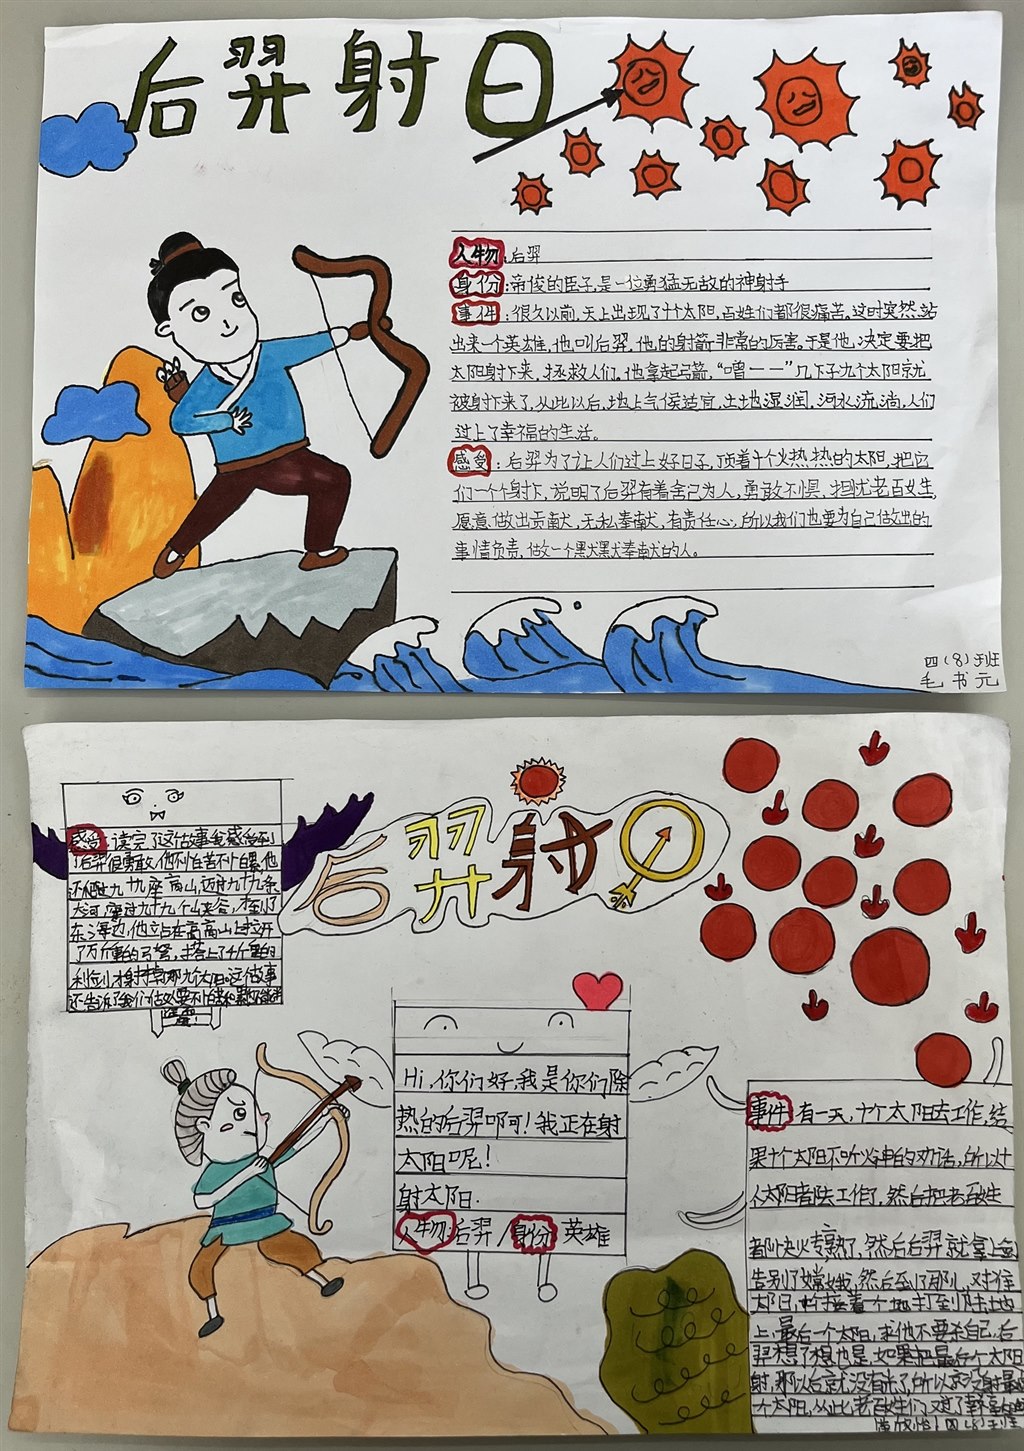 后羿射日
人物:后羿
身份:帝俊的臣子,是一位勇猛无敌的神射手
事件:很久以前,天上出现了十个太阳,百姓们都很痛苦,这时突然站
出来一个英雄,他叫后羿,他的射箭非常的厉害。于是他,决定要把
太阳射下来,拯救人们。他拿起弓箭,“噌一一”几下子九个太阳就
被射下来了,从此以后,地上气侯适宜,土地湿润,河水流淌,人们
过上了幸福的生活。
感受:后羿为了让人们过上好日子,顶着十个火热热的太阳,把它
们一个个射下,说明了后羿有着舍己为人,勇敢不惧,担忧老百姓,
愿意做出贡献,无私奉献,有责任心,所以我们也要为自己做出的
事情负责,做一个默默奉献的人。
四(8)班
毛书元
后羿射日
感受:读完了这个故事我感受到
了后羿很勇敢,他不怕苦不怕累,他
还爬过九十九座高山,迈过九十九条
大河,穿过九十九个山峡谷,才到了
东海边,他立占在高高山上拉开
了万斤重的弓弩,搭上了千斤重的
利箭,才射掉那九个太阳。这个故事
还告诉了我们做人要不怕苦和累
Hi,你们好,我是你们除
热的后羿呵可!我正在射
太阳呢!
射太阳.
人物:后羿/身份 英雄
事件 有一天,十个太阳去工作,结
果十个太阳不听火神的劝话,所以十
个太阳都去工作了,然后把老百姓
都快火专熟了,然后后羿就拿上
告别了嫦娥,然后到了那儿,对准
太阳,一个地打到陆地
上,最后一个太阳,求他不要杀自己,后
羿想了想也是,如果把最后个太阳
射,那以后就没有光了,所以就没射最
一个太阳,从此老百姓们过了幸福
四(8)班